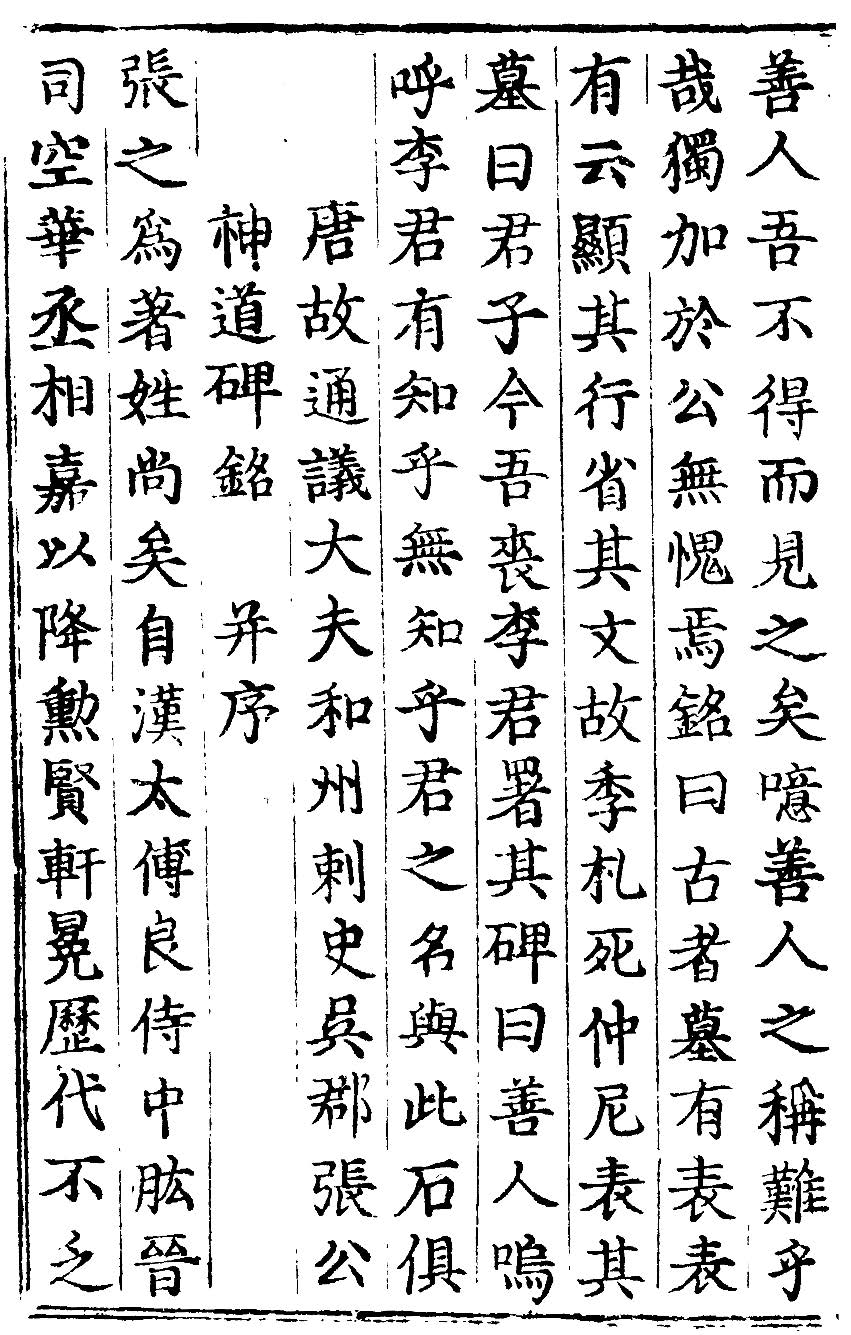 善人吾不得而見之矣噫善人之稱難乎
哉獨加於公無愧焉銘曰古者墓有表表
有云顯其行省其文故季札死仲尼表其
墓曰君子今吾喪李君署其碑曰善人嗚
呼李君有知乎無知乎君之名與此石俱
唐故通議大夫和州刺史吳郡張公
神道碑銘 并序
張之爲著姓尚矣自漢太傅良侍中肱晉
司空華丞相嘉以降勳賢軒冕歷代不乏